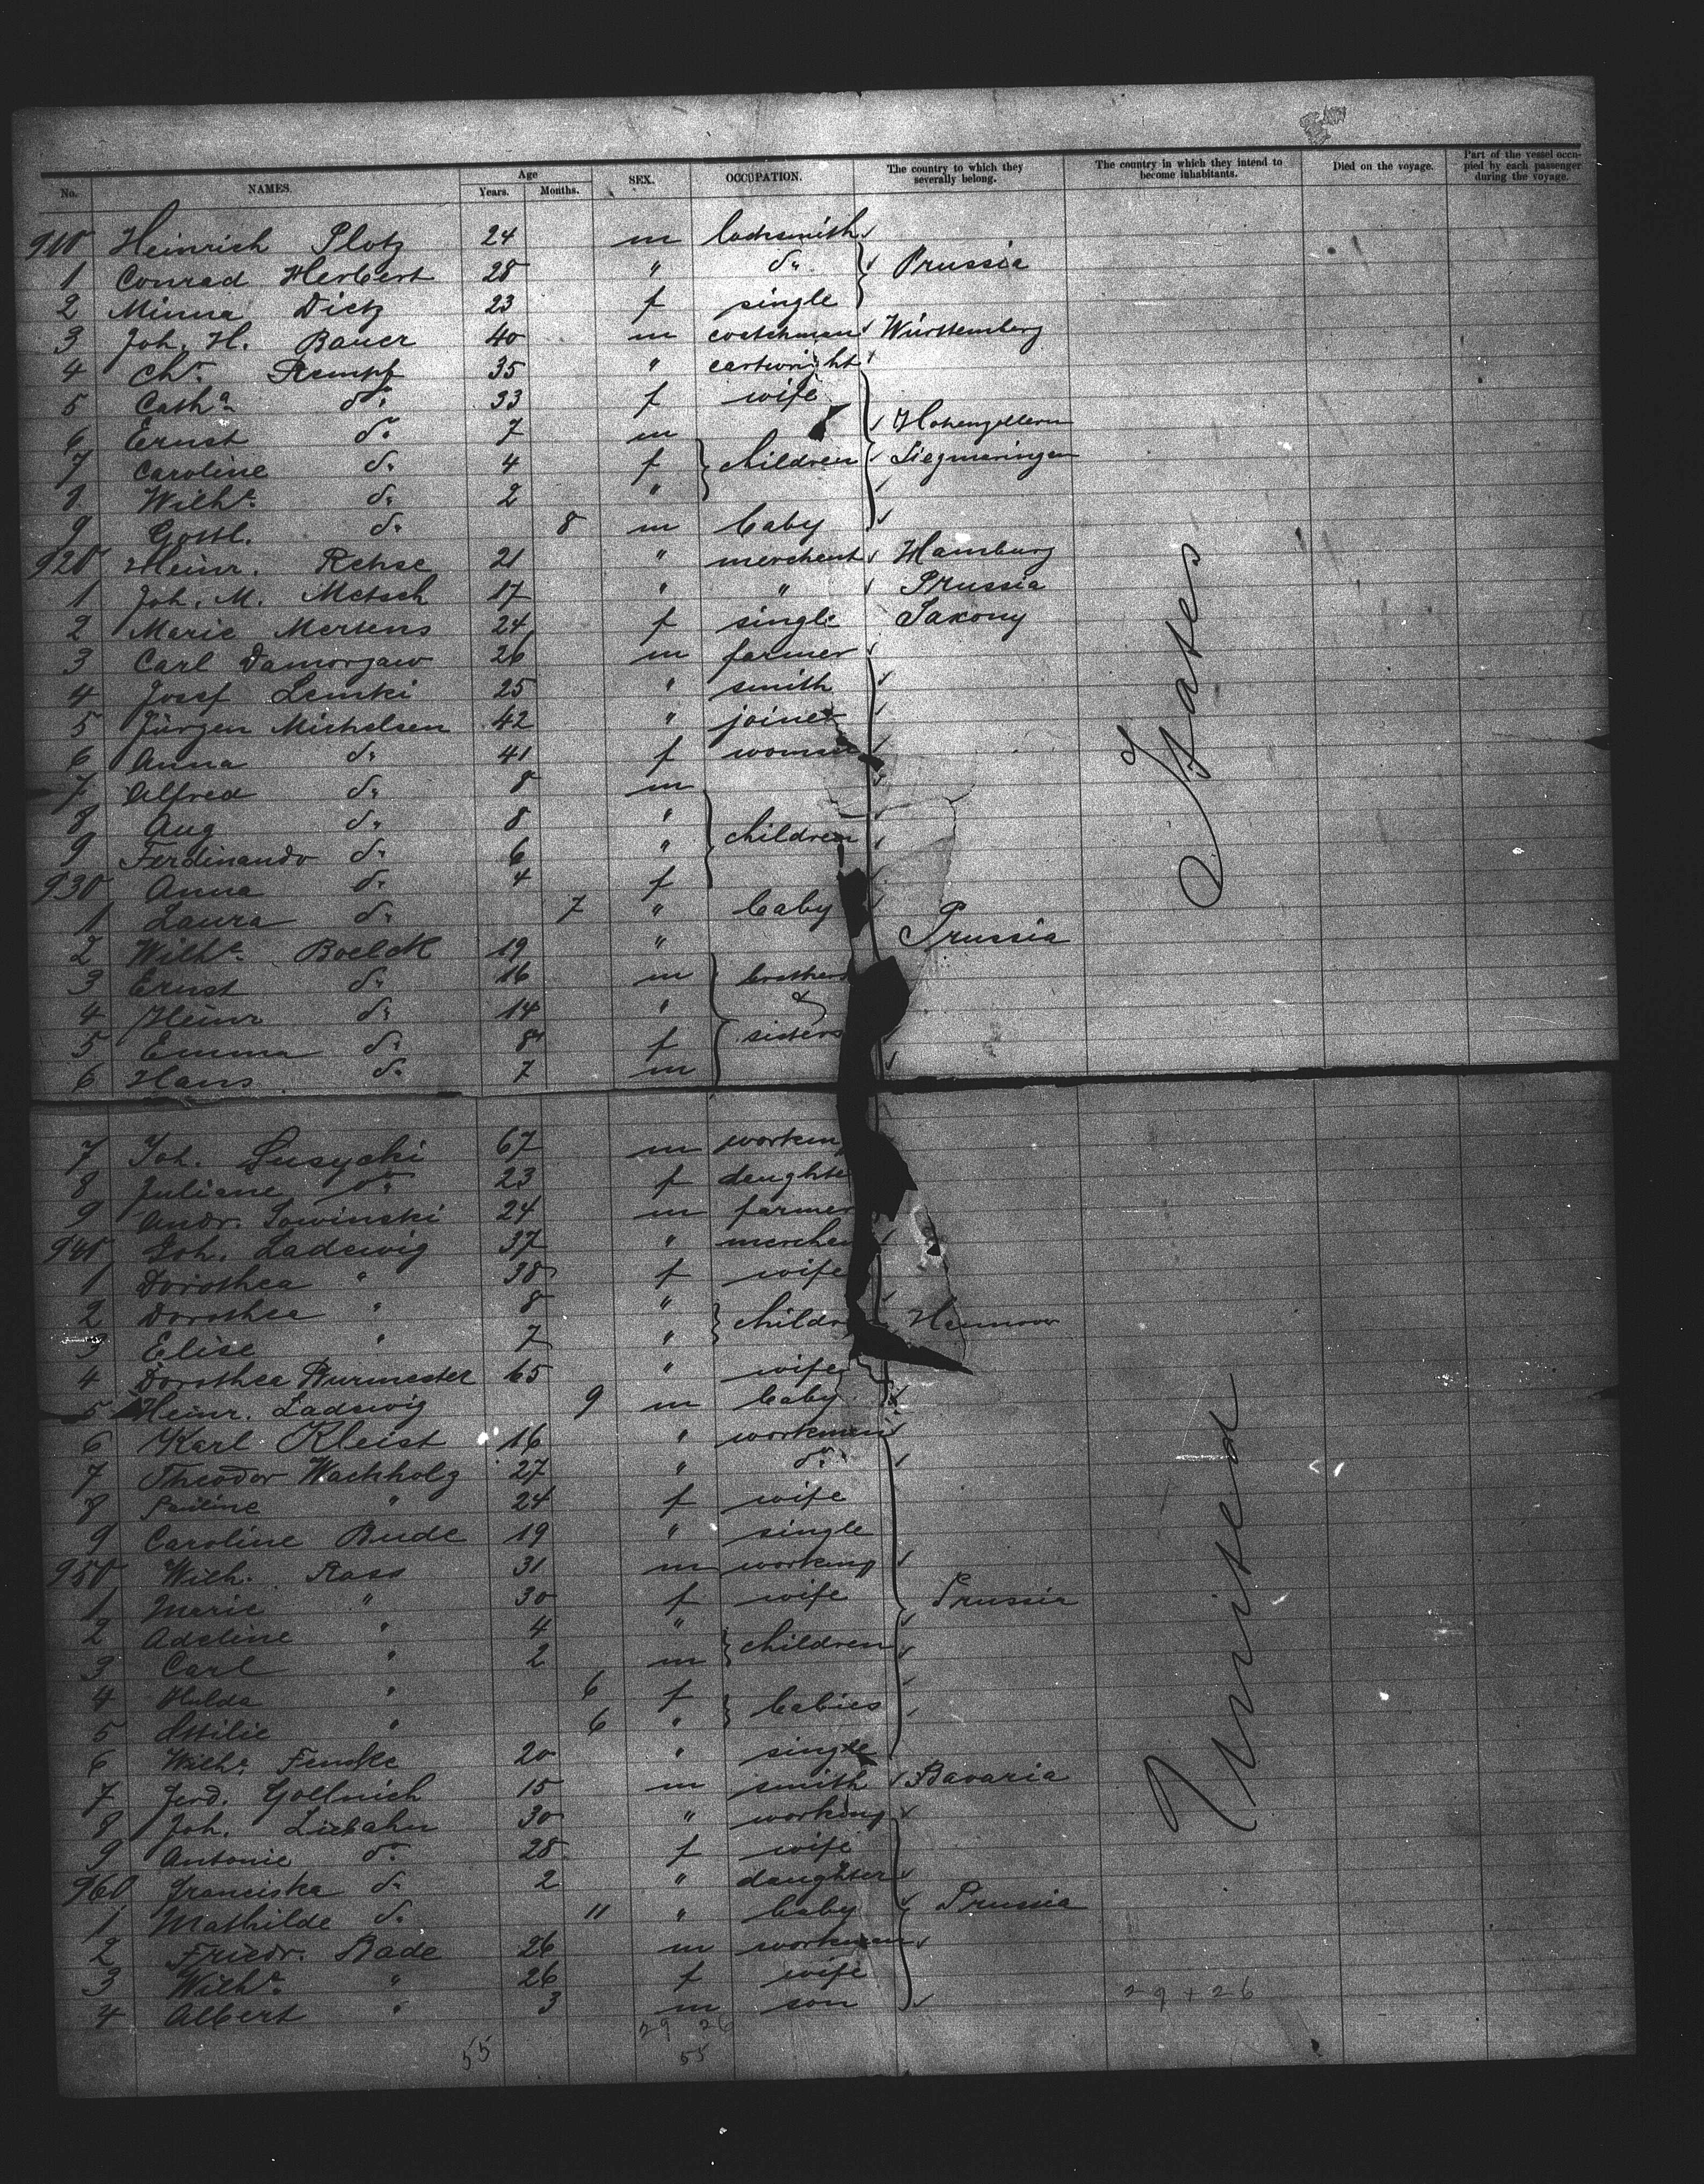 No. NAMES. Age Years. Months. SEX. OCCUPATION. The country to which they severally belong. The country in which they intend to become inhabitants. Died on the voyage. Part of the vessel occupied by each passenger during the voyage.
910 Heinrich Plotz 24 m locksmith
1 Conrad Herbert 28 " do Prussia
2 Minna Dietz 23 f single
3 Joh. H. Bauer 40 m coatchman Württemberg
4 Chr. Rempf 35 " cartwright
5 Catha do 33 f wife
6 Ernst do 7 m Hohenzollern
7 Caroline do 4 f children Siegmaringen
8 Wilhe do 2 "
9 Gottl. do 8 m baby
920 Heinr. Rehse 21 " merchant Hamburg
1 Joh. M. Metsch 17 " " Prussia
2 Marie Mertens 24 f single Saxony
3 Carl Damorzaw 26 m farmer
4 Josef Lemki 25 " smith
5 Jürgen Michelsen 42 " joiner
6 Anna do 41 f woman
7 Alfred do 8 m
8 Aug do 8 " children
9 Ferdinando do 6 "
930 Anna do 4 f
1 Laura do 7 " baby
2 Wilhe Boelck 19 " Prussia
3 Ernst do 16 m brothers
4 Heinr do 14 " &
5 Emma do 8 f sisters
6 Hans do 7 m
7 Joh. Susycki 67 m workm
8 Juliane do 23 f daughte
9 Andr. Sowinski 24 m farmer
940 Joh. Ladewig 37 " merchan
1 Dorothea " 38 f wife
2 Dorothea " 8 "
3 Elise " 7 " childr Hannover
4 Dorothea Burmester 65 " wife
5 Heinr. Ladewig 9 m baby
6 Karl Kleist 16 " workman
7 Theodor Wachholz 27 " do
8 Pauline " 24 f wife
9 Caroline Bude 19 " single
950 Wilh. Rass 31 m working
1 Marie " 30 f wife Prussia
2 Adeline " 4 " children
3 Carl " 2 m
4 Hulda " 6 f babies
5 Ottilie " 6 "
6 Wilhe Fenske 20 " single
7 Ferd. Gollnich 15 m smith Bavaria
8 Joh. Liebahn 30 " working
9 Antonie do 28 f wife
960 Franciska do 2 " daughter
1 Mathilde do 11 " baby Prussia
2 Friedr. Bade 26 m workman
3 Wilhe " 26 f wife
4 Albert " 3 m son
United States
29 + 26
29 26
55 55